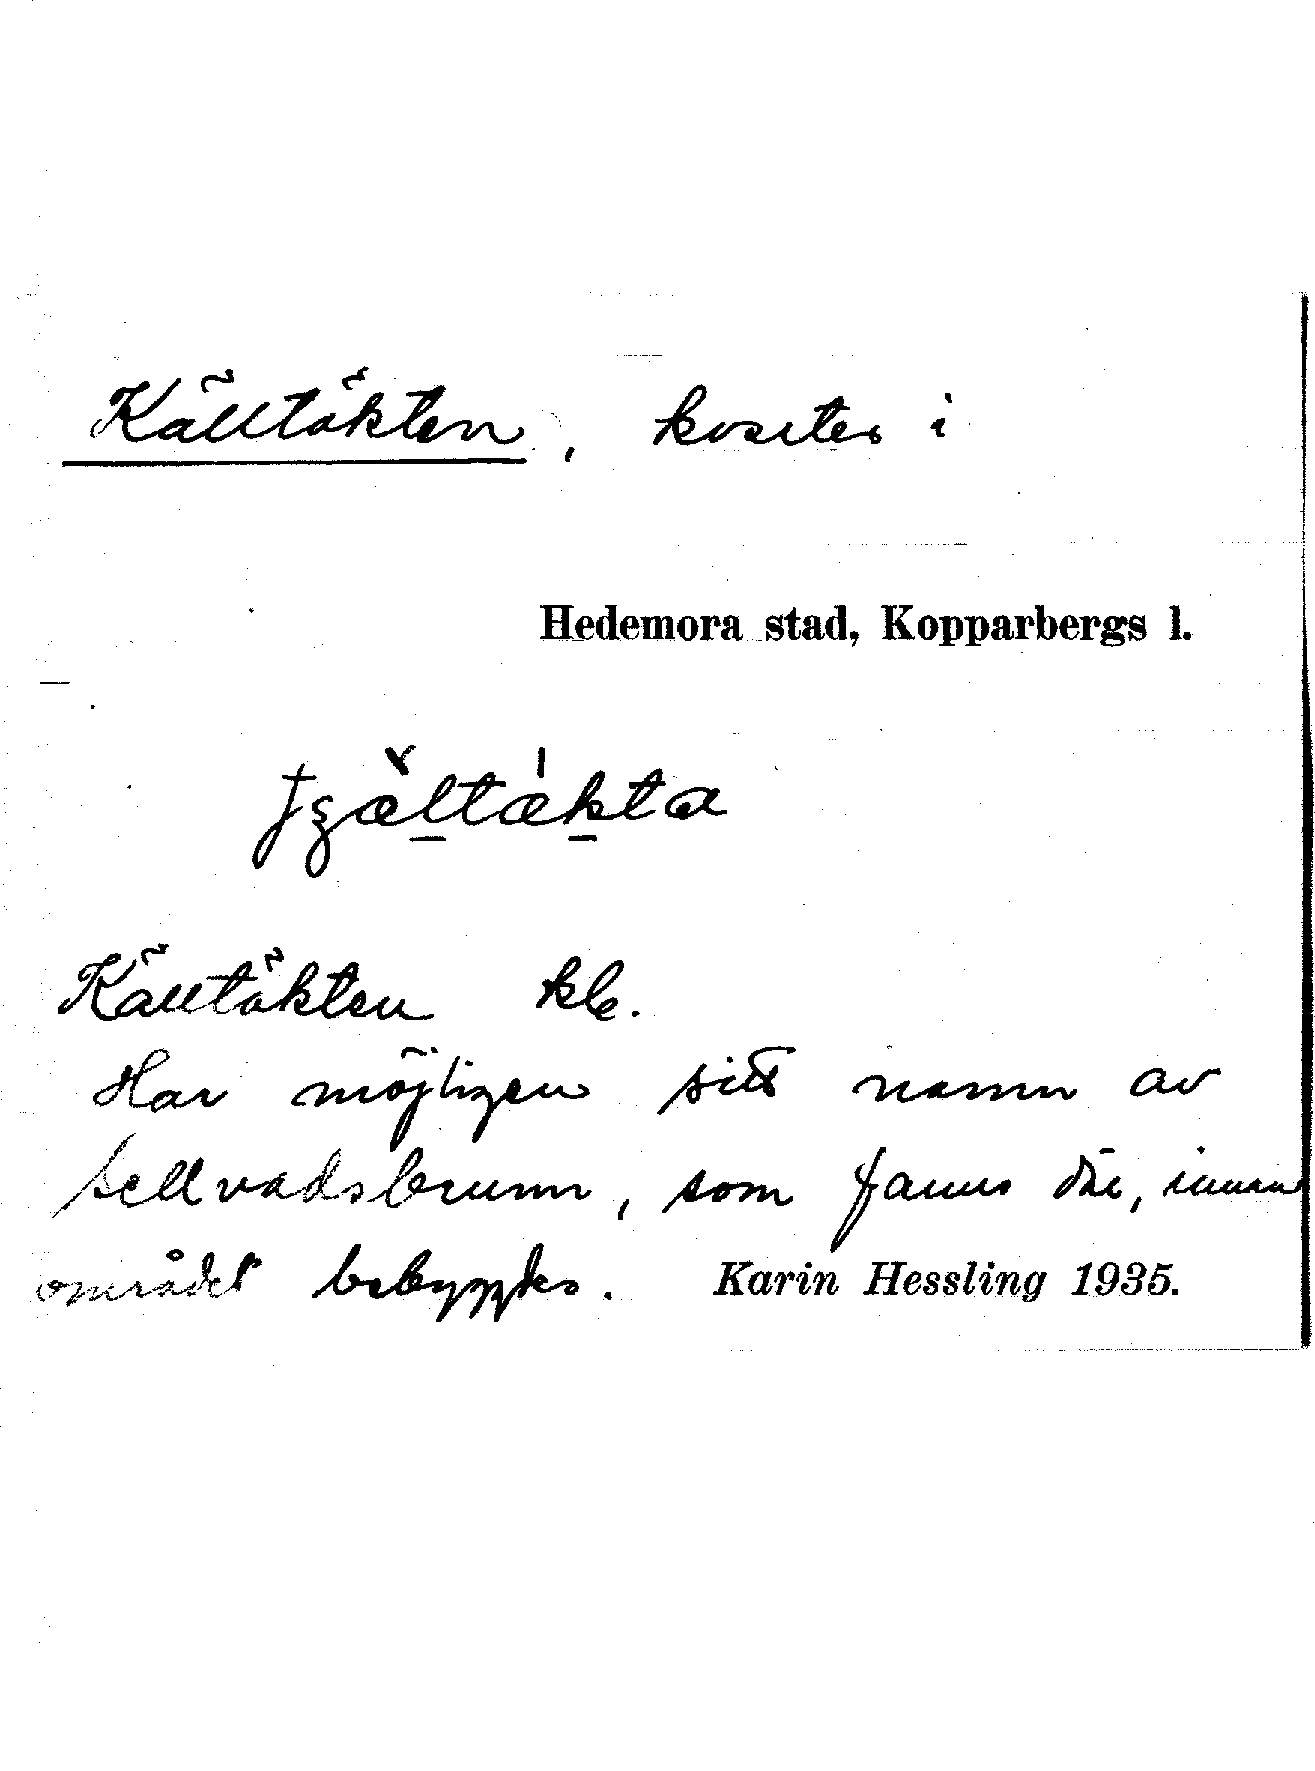 Källtäkten, kvarter i
Hedemora stad, Kopparbergs l.
Källtäkten kb.
Har möjligen sitt namn av
källvadsbrunn, som fanns där, innan
området bebyggdes. Karin Hessling 1935.